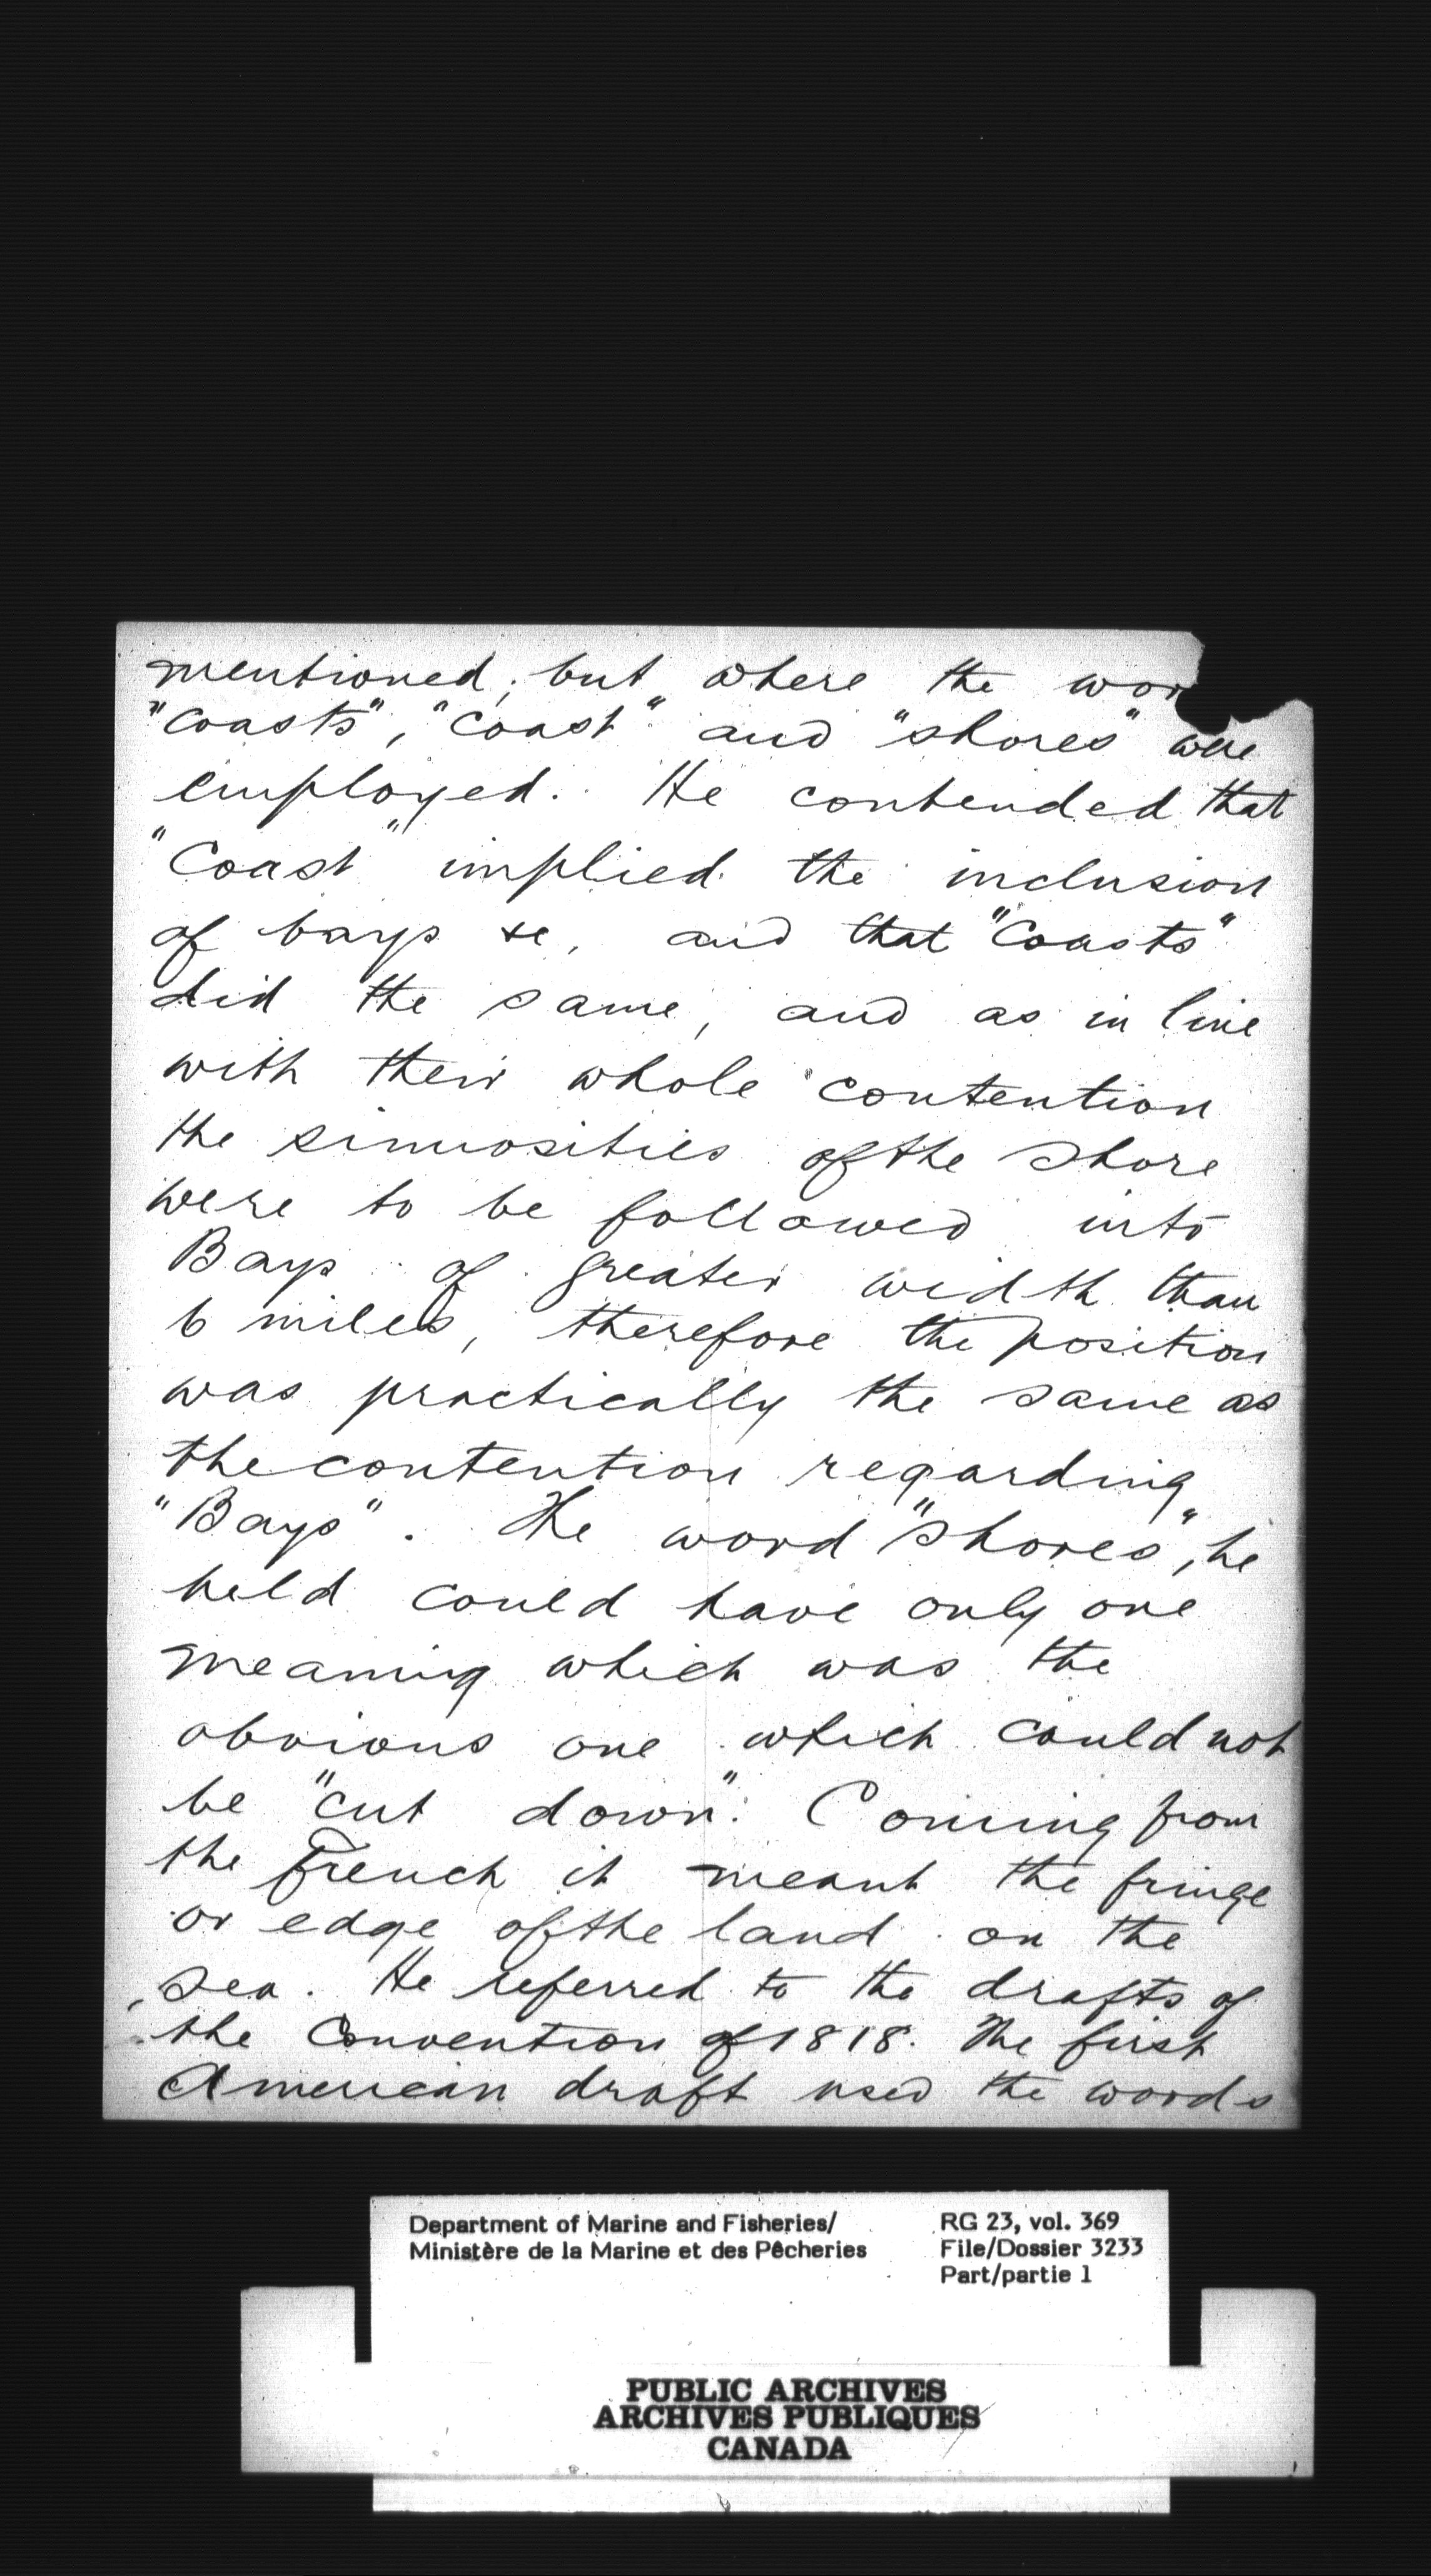 mentioned, but where the wor
"coasts", "coast" and "shores" were
employed. He contended that
"Coast" implied the inclusion
of bays &c, and that "Coasts"
did the same, and as in line
with their whole contention
the sinuosities of the shore
were to be followed into
Bays of greater width than
6 miles, therefore the position
was practically the same as
the contention regarding
"Bays". The word "shores", he
held could have only one
meaning which was the
obvious one which could not
be "cut down". Coming from
the French it meant the fringe
or edge of the land on the
sea. He referred to the drafts of
the Convention of 1818. The first
American draft used the words
Department of Marine and Fisheries/
Ministère de la Marine et des Pêcheries
RG 23, vol. 369
File/Dossier 3233
Part/partie 1
PUBLIC ARCHIVES
ARCHIVES PUBLIQUES
CANADA